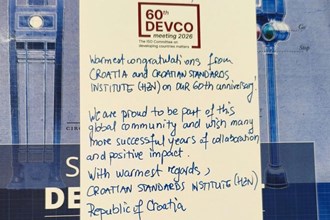 60th
DEVCO
meeting 2026
The ISO Committee on
developing countries matters
Warmest congratulations from
CROATIA and CROATIAN STANDARDS
INSTITUTE (HZN) on our 60th anniversary!
We are proud to be part of this
global community and wish many
more successful years of collaboration
and positive impact.
With warmest regards,
CROATIAN STANDARDS INSTITUTE (HZN)
Republic of Croatia